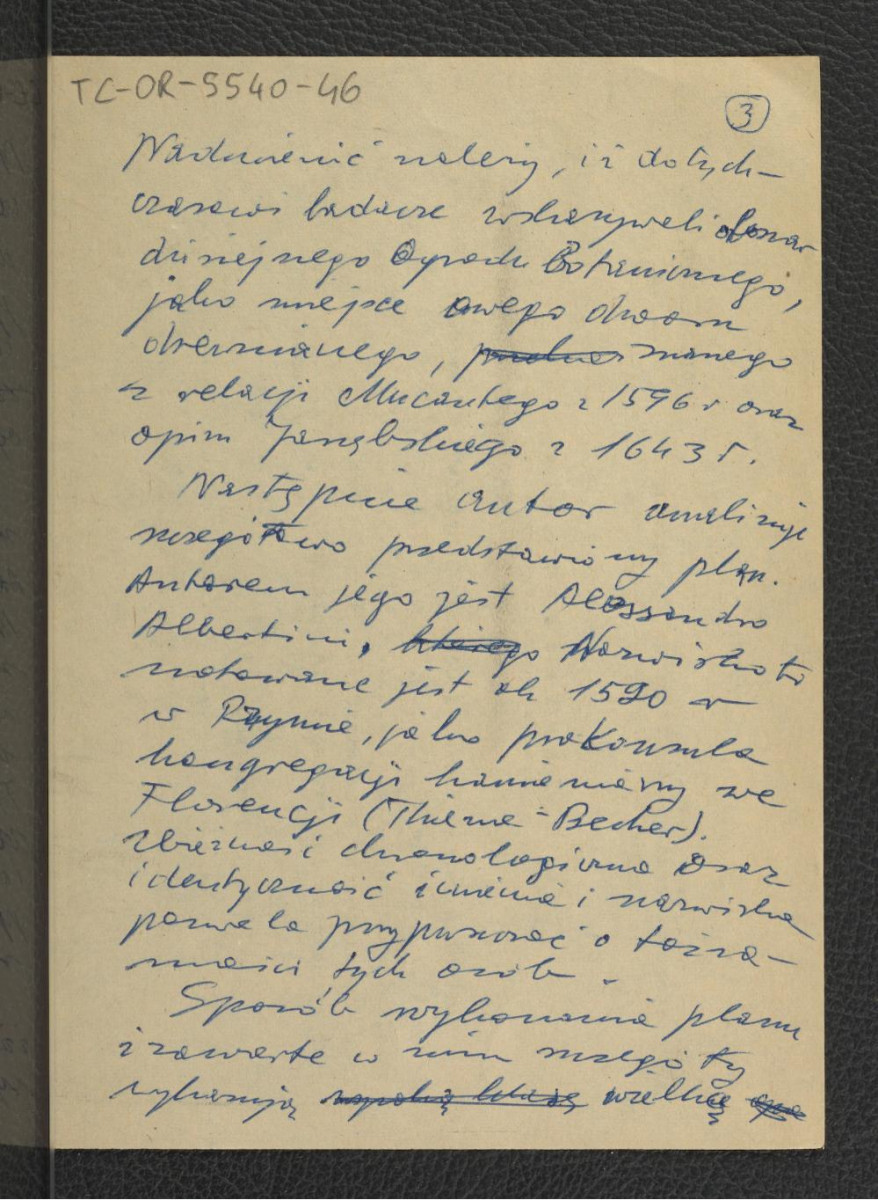 TC-OR-5540-46
3
Nadmienić należy, iż dotych-
czasowi badacze wskazywali obszar
dzisiejszego Ogrodu Botanicznego,
jako miejsce owego dworu
drewnianego, znanego
z relacji Mucantego z 1596 r oraz
opisu Jarzębskiego z 1643 r.
Następnie autor analizuje
szczegółowo przedstawiony plan.
Autorem jego jest Alessandro
Albertini, którego Nazwisko to
notowane jest ok 1590 r
w Rzymie, jako prokonsula
kongregacji kamieniarzy we
Florencji (Thieme-Becker).
Zbieżność chronologiczna oraz
identyczność imienia i nazwiska
pozwala przypuszczać o tożsa-
mości tych osób.
Sposób wykonania planu
i zawarte w nim szczegóły
wykazują wielką